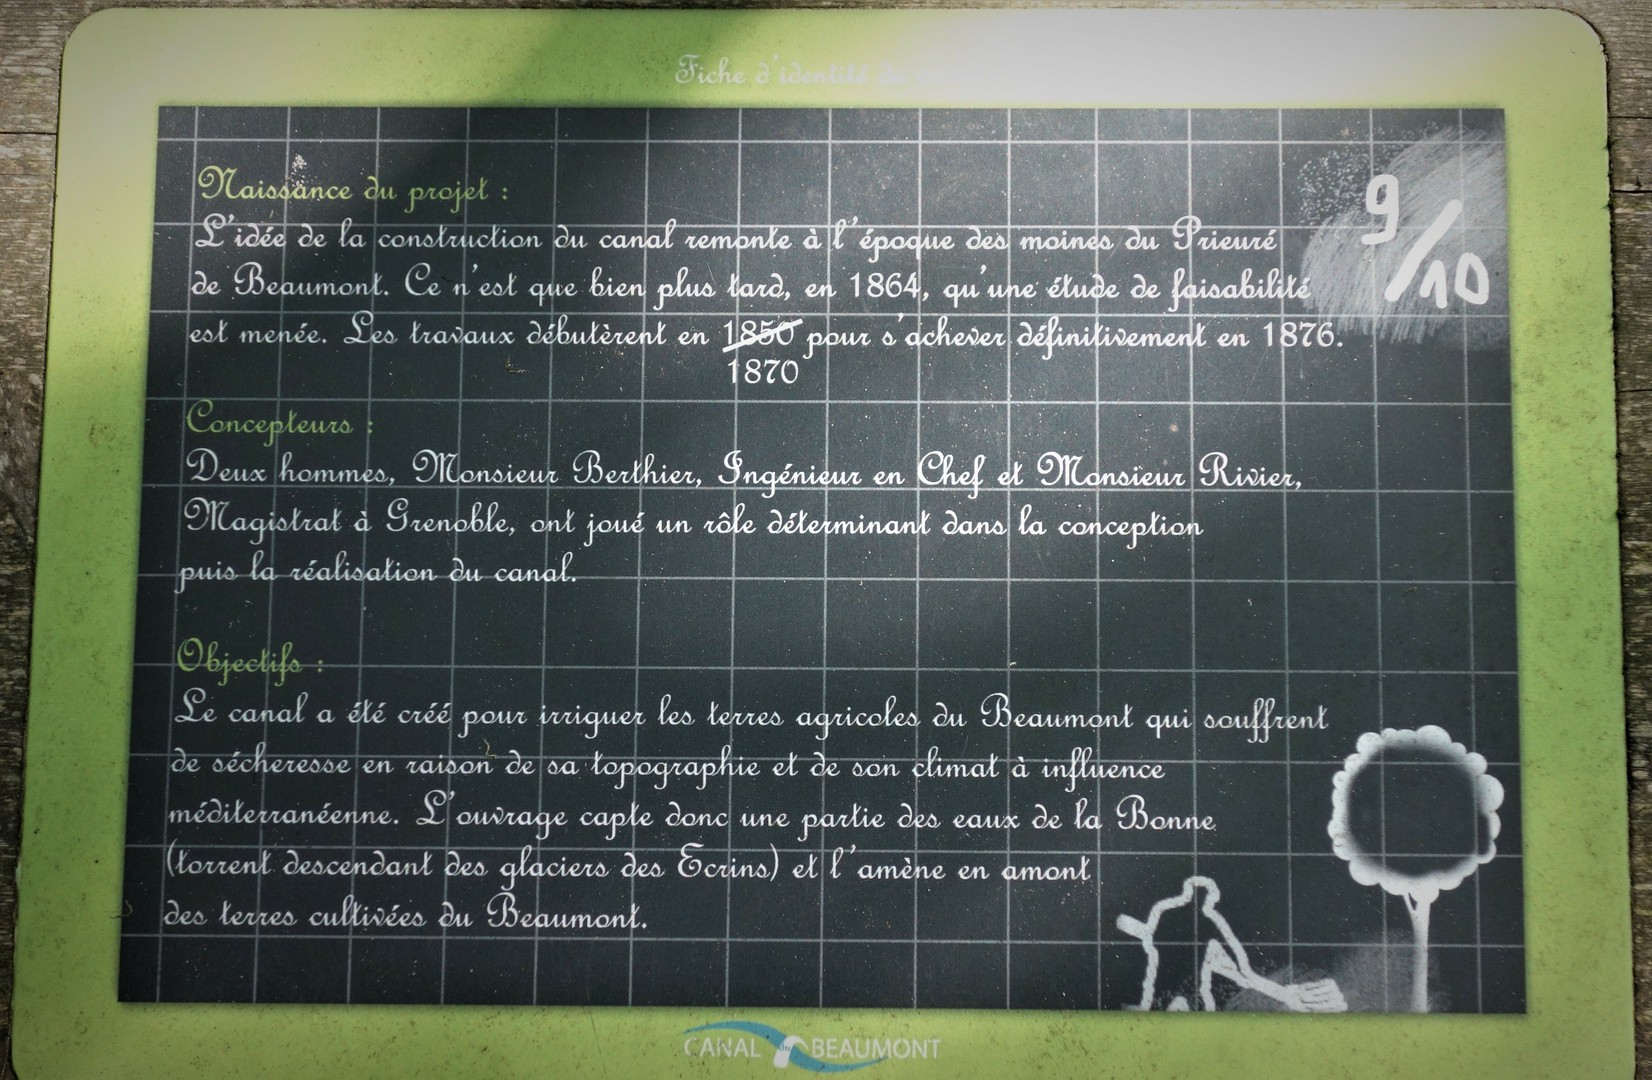 Fiche d'identité du
Naissance du projet :
L'idée de la construction du canal remonte à l'époque des moines du Prieuré
de Beaumont. Ce n'est que bien plus tard, en 1864, qu'une étude de faisabilité
est menée. Les travaux débutèrent en 1850 pour s'achever définitivement en 1876.
1870
9/10
Concepteurs :
Deux hommes, Monsieur Berthier, Ingénieur en Chef et Monsieur Rivier,
Magistrat à Grenoble, ont joué un rôle déterminant dans la conception
puis la réalisation du canal.
Objectifs :
Le canal a été créé pour irriguer les terres agricoles du Beaumont qui souffrent
de sécheresse en raison de sa topographie et de son climat à influence
méditerranéenne. L'ouvrage capte donc une partie des eaux de la Bonne
(torrent descendant des glaciers des Ecrins) et l'amène en amont
des terres cultivées du Beaumont.
CANAL du BEAUMONT